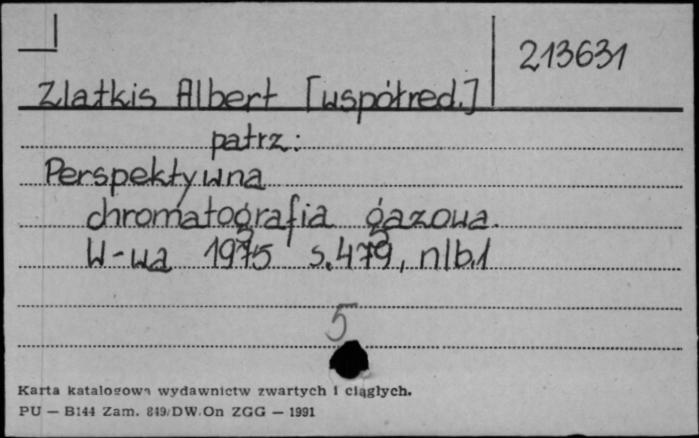 213631
Zlatkis Albert [współred.]
patrz:
Perspektywna
chromatografia gazowa.
W-wa 1975 s.479, nlb.1
5
Karta katalogowa wydawnictw zwartych i ciągłych.
PU — B144 Zam. 849/DW.On ZGG — 1991